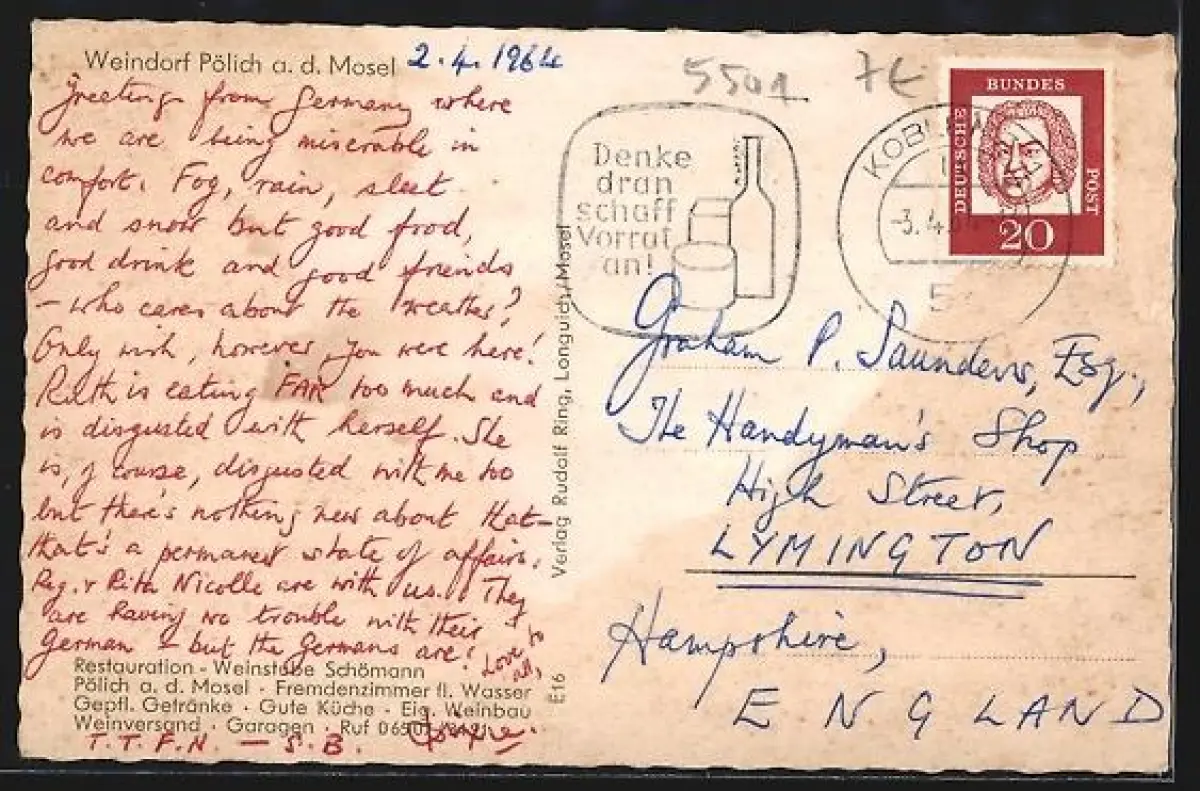 Weindorf Pölich a. d. Mosel 2.4.1964
Greetings from Germany where
we are being miserable in
comfort. Fog, rain, sleet
and snow but good food,
good drink and good friends
– who cares about the weather?
Only wish, however, you were here!
Ruth is eating FAR too much and
is disgusted with herself. She
is, of course, disgusted with me too
but there's nothing new about that –
that's a permanent state of affairs.
Reg. & Rita Nicolle are with us. They
are having no trouble with their
German – but the Germans are!
Love to
all,
Restauration - Weinstube Schömann
Pölich a. d. Mosel · Fremdenzimmer fl. Wasser
Gepfl. Getränke · Gute Küche · Eig. Weinbau
Weinversand · Garagen · Ruf
T.T.F.N. – S.B.
Verlag Rudolf Ring, Longuich/Mosel
E16
5501 7€
Denke
dran
schaff
Vorrat
an!
KOBLENZ
-3.4.64
DEUTSCHE
BUNDES
POST
20
Graham P. Saunders, Esq.,
The Handyman's Shop
High Street,
LYMINGTON
Hampshire,
ENGLAND